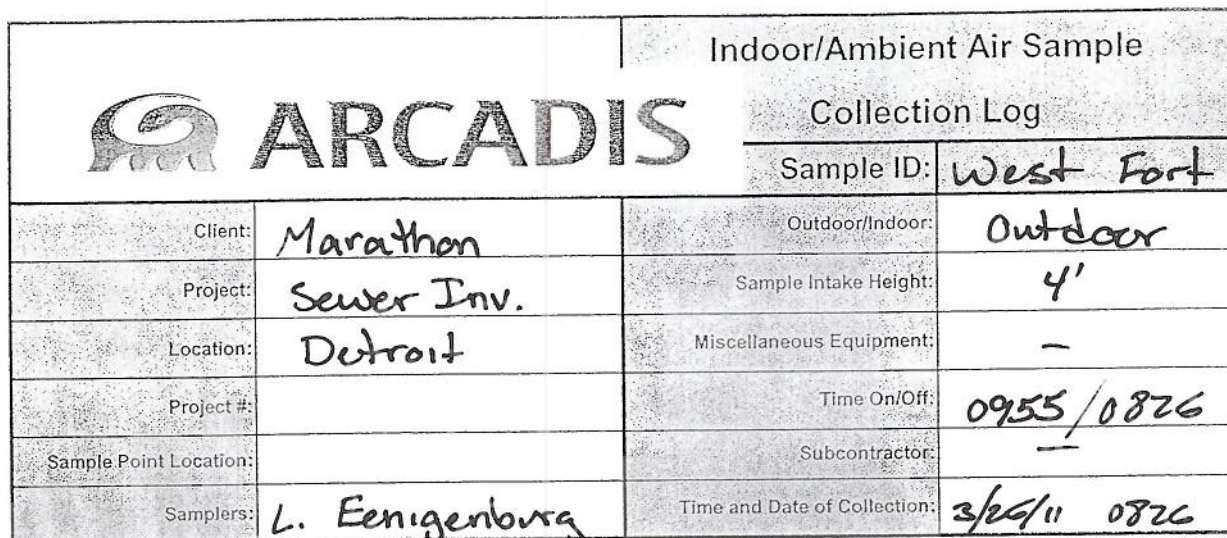 Indoor/Ambient Air Sample
Collection Log
ARCADIS
Sample ID: West Fort
Client: Marathon
Outdoor/Indoor: Outdoor
Project: Sewer Inv.
Sample Intake Height: 4'
Location: Detroit
Miscellaneous Equipment: —
Project #:
Time On/Off: 0955/0826
Sample Point Location:
Subcontractor: —
Samplers: L. Eenigenburg
Time and Date of Collection: 3/26/11 0826